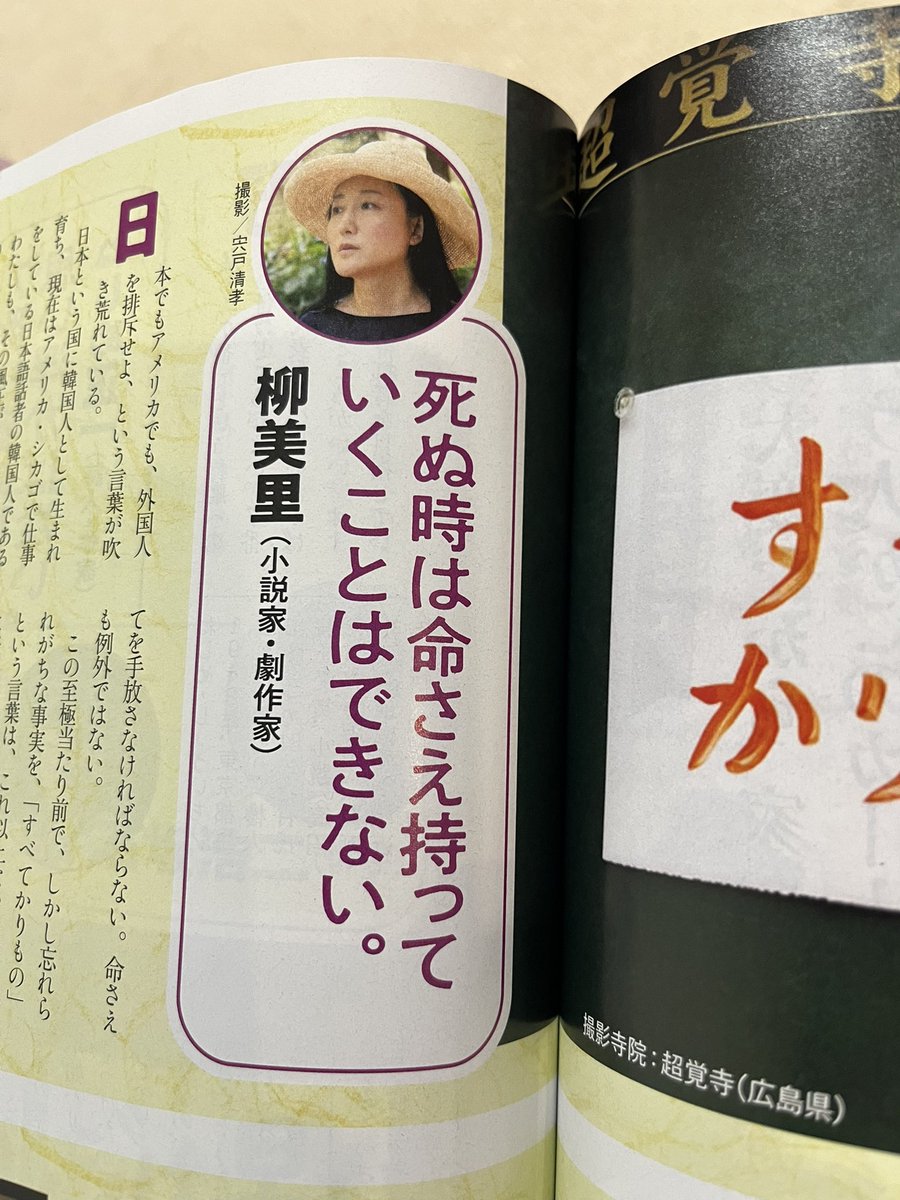 超覚寺
す
か
撮影寺院：超覚寺（広島県）
死ぬ時は命さえ持って
いくことはできない。
柳美里（小説家・劇作家）
撮影／宍戸清孝
日本でもアメリカでも、外国人
を排斥せよ、という言葉が吹
き荒れている。
日本という国に韓国人として生まれ
育ち、現在はアメリカ・シカゴで仕事
をしている日本語話者の韓国人である
わたしも、その
てを手放さなければならない。命さえ
も例外ではない。
この至極当たり前で、しかし忘れら
れがちな事実を、「すべてかりもの」
という言葉は、これ以上